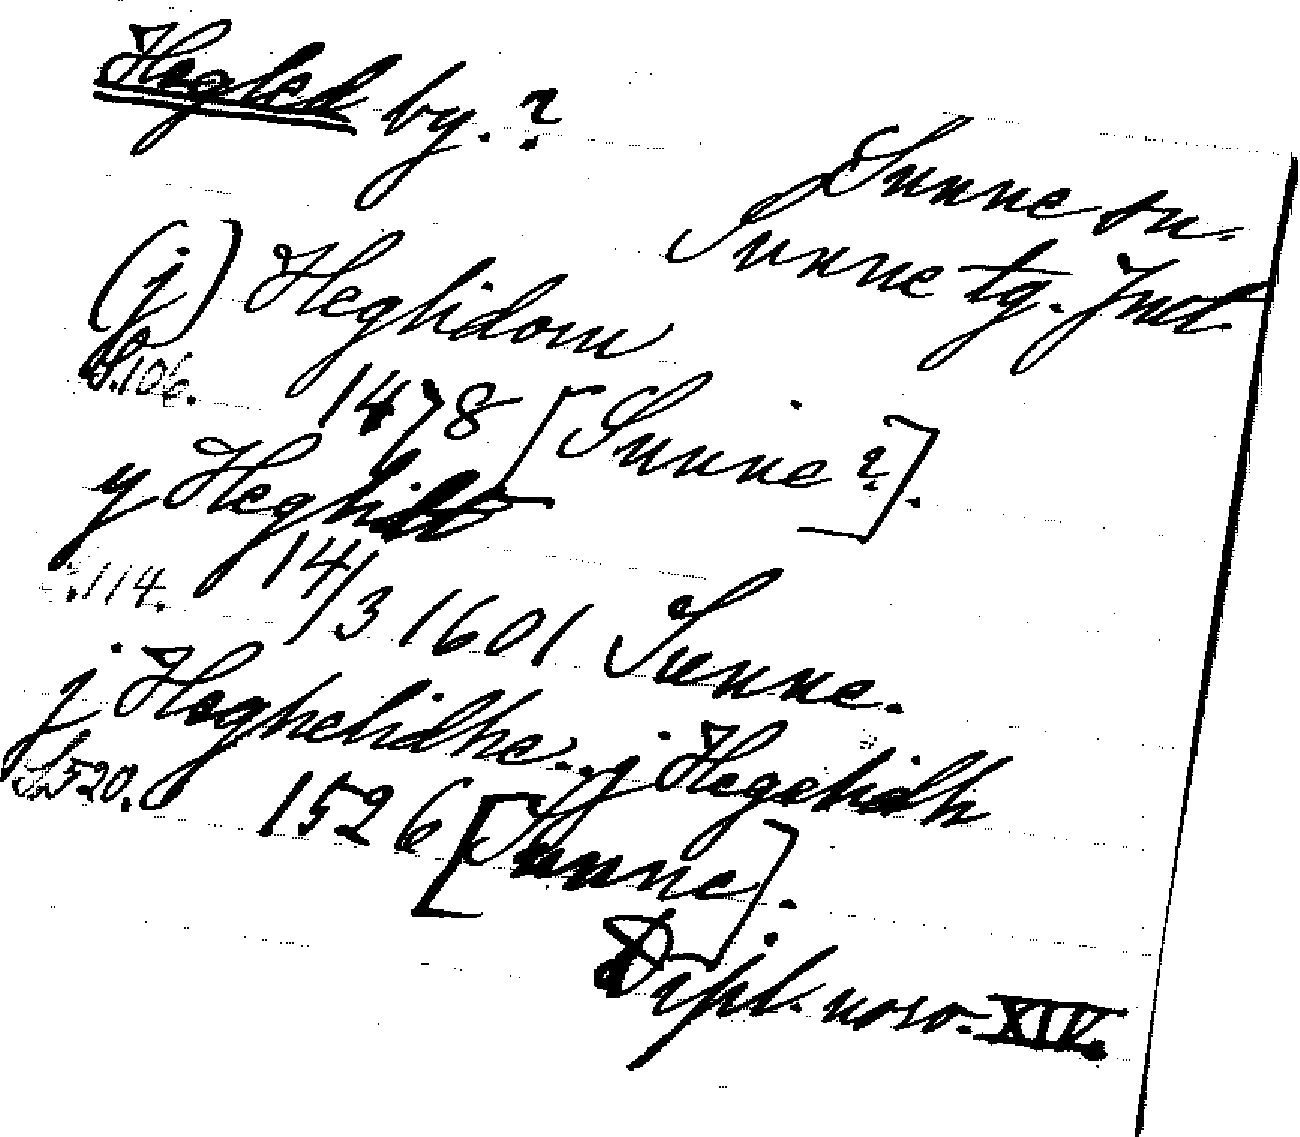 Hegled by. ?
Sunne sn.
Sunne tg. Jmtl
(j) Heglidom
S. 106. 1478 [Sunne?].
y Heghlid
S. 114. 14/3 1601 Sunne.
j Heghelidhe. j Hegelidh
S. 520. 1526 [Sunne].
Dipl. norv. XIV.